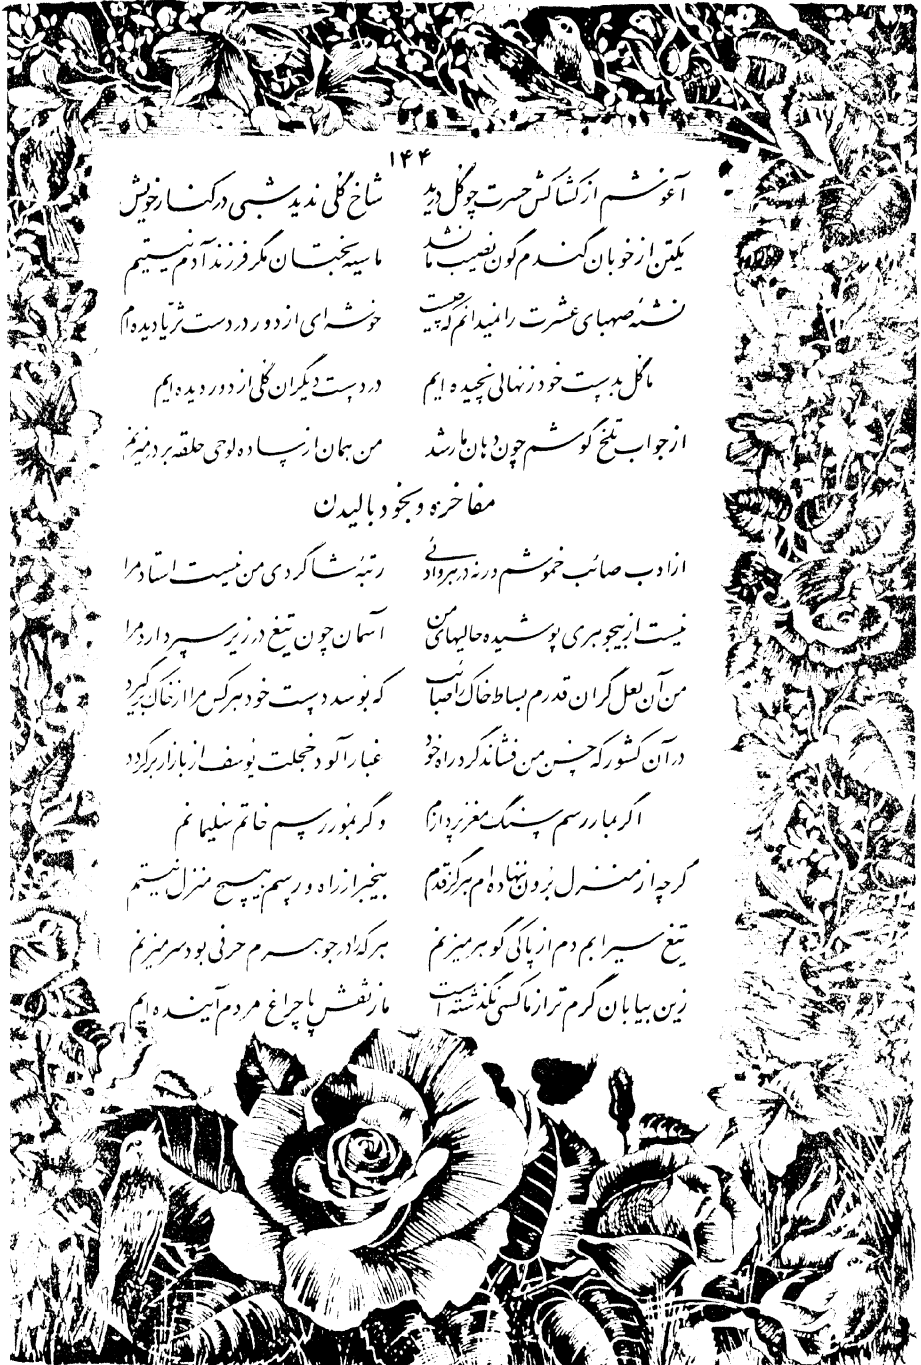 ۱۴۴
آغوشم از کشاکش حسرت چو گل درید شاخ گلی ندید شبی در کنار خویش
یکتن از خوبان گندم گون نصیب ما نشد ما سیه بختان مگر فرزند آدم نیستیم
نشئهٔ صهبای عشرت را نمیدانم که چیست خوشه‌ای از دور در دست ثریا دیده‌ام
ما گل بدست خود ز نهالی نچیده ایم در دست دیگران گلی از دور دیده ایم
از جواب تلخ گوشم چون دهان مار شد من همان از ساده لوحی حلقه بر در میزنم
مفاخره و بخود بالیدن
از ادب صائب خموشم ورنه در هر وادئی رتبهٔ شاگردی من نیست استاد مرا
نیست از بیجوهری پوشیده حالیهای من آسمان چون تیغ در زیر سپر دارد مرا
من آن لعل گران قدرم بساط خاک را صائب که بوسد دست خود هر کس مرا از خاک برگیرد
در آن کشور که حسن من فشاند گرد راه خود غبار آلود خجلت یوسف از بازار برگردد
اگر بمار رسم سنگ مغز پردازم وگر بمور رسم خاتم سلیمانم
گرچه از منزل برون ننهاده‌ام هرگز قدم بیخبر از راه و رسم هیچ منزل نیستم
تیغ سیرابم دم از پاکی گوهر میزنم هر که را در جوهرم حرفی بود سر میزنم
زین بیابان گرم تر از ما کسی نگذشته است ما ز نقش پا چراغ مردم آینده ایم